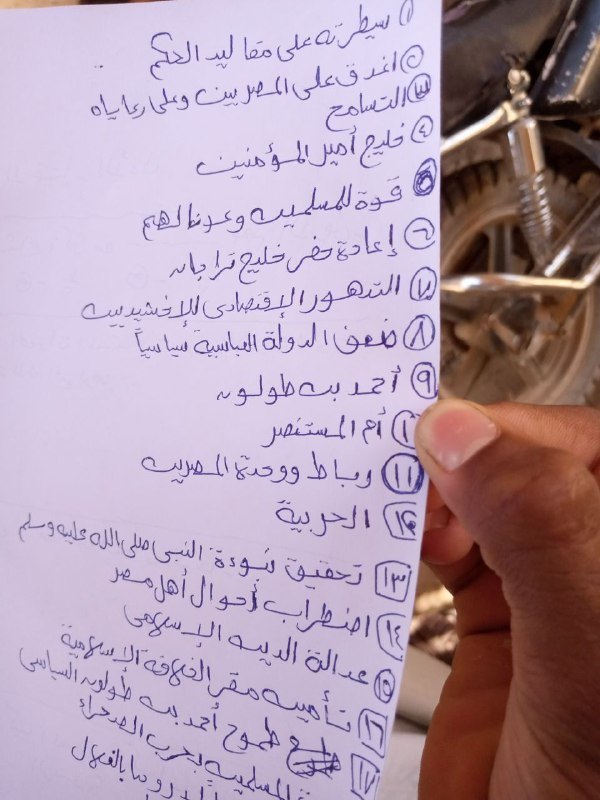 ١ سيطرته على مقاليد الحكم
٢ اغدق على المصريين وعلى رعاياه
٣ التسامح
٤ خليج أمير المؤمنين
٥ قوة للمسلمين وعونا لهم
٦ إعادة حفر خليج تراجان
٧ التدهور الإقتصادى للإخشيديين
٨ ضعف الدولة العباسية سياسياً
٩ أحمد بن طولون
١٠ أم المستنصر
١١ رباط ووحدة المصريين
١٢ الحربية
١٣ تحقيق نبوءة النبى صلى الله عليه وسلم
١٤ اضطراب أحوال أهل مصر
١٥ عدالة الدين الإسلامى
١٦ تأمين مقر الخلافة الإسلامية
طموح أحمد بن طولون السياسى
١٧ المسلمين بحرب الصحراء